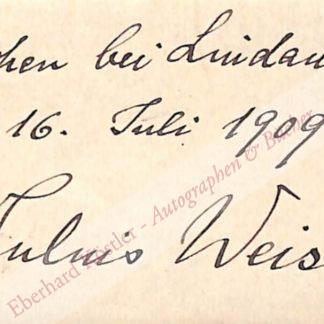 hen bei Lindau
16. Juli 1909
Julius Weis
Eberhard Köstler - Autographen & Bücher